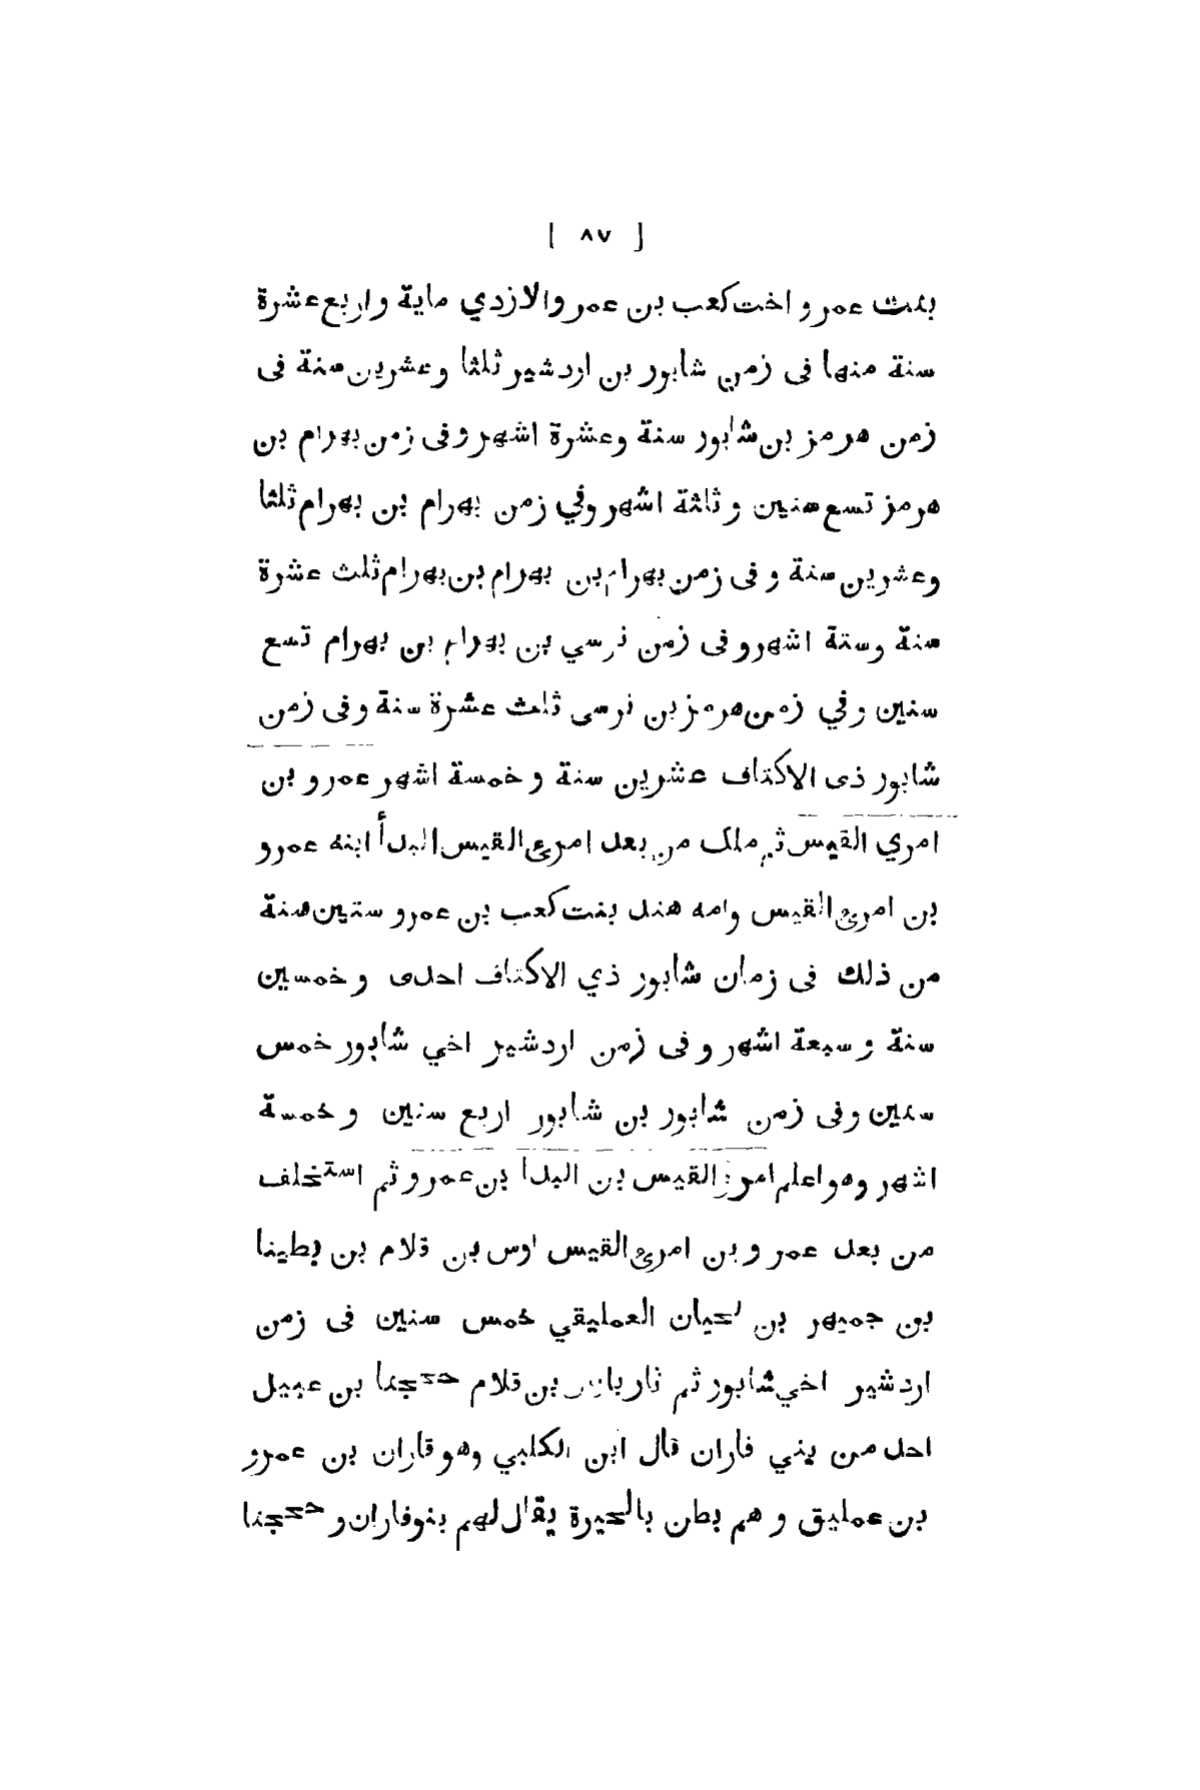 [ ٨٧ ]
بنت عمرو اخت كعب بن عمرو الازدي ماية واربع عشرة
سنة منها فى زمن شابور بن اردشير ثلثا وعشرين سنة فى
زمن هرمز بن شابور سنة وعشرة اشهر وفى زمن بهرام بن
هرمز تسع سنين و ثلثة اشهر وفي زمن بهرام بن بهرام ثلثا
وعشرين سنة و فى زمن بهرام بن بهرام بن بهرام ثلث عشرة
سنة وستة اشهر وفى زمن نرسي بن بهرام بن بهرام تسع
سنين وفي زمن هرمز بن نرسى ثلث عشرة سنة وفى زمن
شابور ذى الاكتاف عشرين سنة و خمسة اشهر عمرو بن
امري القيس ثم ملك من بعد امرئ القيس البدأ ابنه عمرو
بن امرئ القيس وامه هند بنت كعب بن عمرو ستين سنة
من ذلك فى زمان شابور ذي الاكتاف احدى وخمسين
سنة وسبعة اشهر وفى زمن اردشير اخي شابور خمس
سنين وفى زمن شابور بن شابور اربع سنين وخمسة
اشهر وهو اعلم امرئ القيس بن البدأ بن عمرو ثم استخلف
من بعد عمرو بن امرئ القيس اوس بن قلام بن بطينا
بن جميهر بن لحيان العمليقي خمس سنين فى زمن
اردشير اخي شابور ثم ثار باوس بن قلام حججنا بن عبيل
احد من بني فاران قال ابن الكلبي وهو فاران بن عمرو
بن عمليق و هم بطن بالحيرة يقال لهم بنو فاران و حججنا